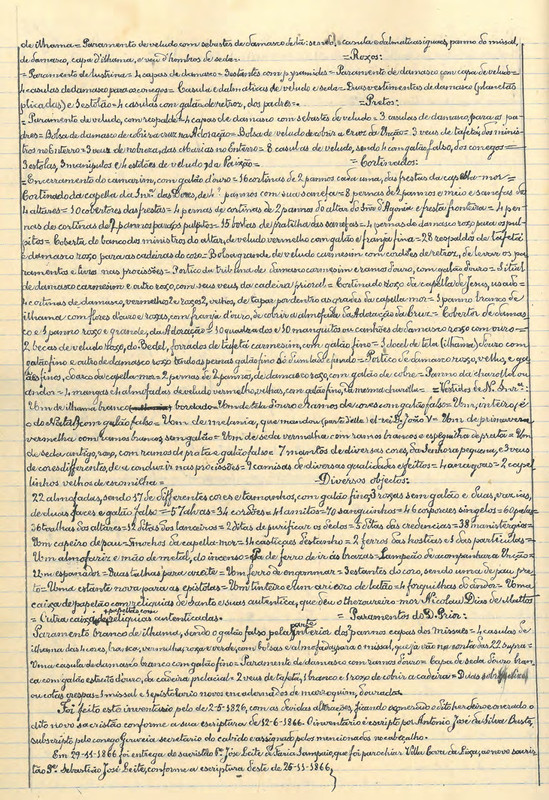 de ilhama = Paramento de veludo com sebastes de damasco de lã: sendo casula e dalmaticas iguaes, panno do missal,
de damasco, capa d'ilhama, e veu d'hombros de seda. =Roxos:
=Paramento de lustrina = 4 capas de damasco = 3 estantes com pyramides = Paramento de damasco com capa de veludo =
4 casulas de damasco para os conegos = Casula e dalmaticas de veludo e seda = Duas vestimentas de damasco (planetas
plicadas) e 3 estolão = 4 casulas com galão de retroz, dos padres. = Pretos:
=Paramento de veludo, com respaldo = 4 capas de damasco com sebastes de veludo = 3 casulas de damasco para os pa-
dres = Bolsa de damasco de cobrir a cruz na Adoração = Bolsa de veludo de cobrir a cruz da Unção = 3 veus de tafetá, dos minis-
tros no Enterro = 3 veus de nobreza, das Marias no Enterro = 8 casulas de veludo, sendo 4 com galão falso, dos conegos =
3 estolas, 3 manipulos e 4 estolões de veludo, da Paixão = = Cortinados:
=Encerramento do camarim, com galão d'ouro = 16 cortinas de 2 pannos cada uma, das frestas da capella-mor =
Cortinado da capella da Inr. das Dores, de 4 pannos com sua sanefa = 8 pernas de 2 pannos e meio e sanefas de
4 altares = 10 covertores das frestas = 4 pernas de cortinas de 2 pannos do altar do Snr. d'Agonia e fresta fronteira = 4 per-
nas de cortinas de 2 pannos para os pulpitos = 4 pernas de damasco roxo para os pul-
pitos = Coberta do banco dos ministros do altar, de veludo vermelho com galão e franja fina = 28 respaldos de tafetá
e damasco roxo para as cadeiras do coro = Bolsa grande de veludo carmesim com cordões de retroz, de levar os pa-
ramentos e livros nas procissões = Portico da tribuna de damasco carmesim e ramo d'ouro, com galão d'ouro =
de damasco carmesim e outro roxo, com seus veus, da cadeira prioral = Cortinado roxo da capella de Jesus, usado =
4 cortinas de damasco, vermelho 2 e roxas 2, velhas, de tapar por dentro as grades da capella mor = 1 panno branco de
ilhama com flores d'ouro e roxas, com franja d'ouro, de cobrir a almofada da Adoração da Cruz = Cobertor de damas-
co e 1 panno roxo e grande, da Adoração = 10 quadrados e 10 manguitos ou canhões de damasco roxo com ouro =
2 becas de veludo roxo, do Bedel, forradas de tafetá carmesim, com galão fino = 1 docel de tela (ilhama) d'ouro com
galão fino e outro de damasco roxo tendo as pernas galão fino = Portico de damasco roxo, velho, e ga-
lões finos, do arco da capella-mor = 2 pernas de 2 pannos, de damasco roxo, com galão de cobre = Panno da charolla ou
andor = 4 mangas e 4 almofadas de veludo vermelho, velhas, com galão fino, da mesma charolla = =Vestidos de N. Snr.ª:
=Um de ilhama branco bordado = Um de tela d'ouro e ramos de cores com galão falso = Um, inteiro, (é
o do Natal) com galão falso = Um de melania, que mandou (parte delle) el-rei D. João V = Um de primavera
vermelha com ramos brancos, sem galão = Um de seda vermelha com ramos brancos e espeguilha de prata = Um
de seda antigo, roxo, com ramos de prata e galão falso = 7 mantos de diversas cores, da Senhora pequena, e 3 veus
de cores differentes, de se conduzir nas procissões = 9 camisas de diversas qualidades e feitos = 4 anagoas = 2 capel-
linhos velhos de esmomilha = Diversos objectos:
22 almofadas, sendo 17 de differentes cores e tamanhos, com galão fino, 3 roxas sem galão e duas, várias,
de duas faces e galão falso = 57 alvas = 34 cordões = 41 amitos = 70 sanguinhos = 46 corporaes singelos = 60 palas =
36 toalhas dos altares = 12 ditas dos lavatorios = 2 ditas de purificar os dedos = 5 ditas das credencias = 38 manistergios =
Um capeiro de pau = 5 mochos da capella-mor = 14 castiçaes d'estanho = 2 ferros das hostias e 5 das particulas =
Um almofariz e mão de metal, do incenso = Pá de ferro de ir ás brazas = Lampeão de acompanhar a Unção =
Um espanador = Duas talhas para azeite = Um ferro de engommar = 3 estantes do coro, sendo uma de pau pre-
to = Uma estante nova para as epistolas = Um tinteiro e um arieiro de latão = 4 forquilhas do andor = Uma
caixa de papelão com reliquias de Santos e suas autenticas, que deu o thezoureiro-mor Nicolau Dias de Mattos
= Outra caixa de reliquias autenticadas. = Paramentos do D. Prior:
Paramento branco de ilhama, sendo o galão falso pela parte interior dos pannos e capas dos missaes = 4 casulas de
ilhama das 4 cores, branca, vermelha, roxa e verde, com bolsas e almofadas para o missal, que já vão na conta das 22 supra =
Uma casula de damasco branco com galão fino = Paramento de damasco com ramos d'ouro = Capa de seda d'ouro bran-
ca com galão estreito d'ouro, da cadeira prelacial = 2 veus de tafetá, 1 branco e 1 roxo de cobrir a cadeira =
ou cotas crespas = 1 missal e 1 epistolario novos encadernados de marroquim, dourados.
Foi feito este inventario pelo de 2-5-1826, com as devidas alterações, ficando exonerado o dito Pe. e onerado o
dito novo sacristão conforme a sua escriptura de 12-6-1866. O inventario é escripto por Antonio José da Silva Basto,
subscripto pelo conego Gouveia secretario do cabido e assignado pelos mencionados no cabeçalho.
Em 29-11-1866 foi entregue do sacristão Pe. José Leite de Faria Sampaio, que foi parochiar Villa Cova da Lixa, ao novo sacris-
tão Pe. Sebastião José Leite, conforme a escriptura deste de 25-11-1866.